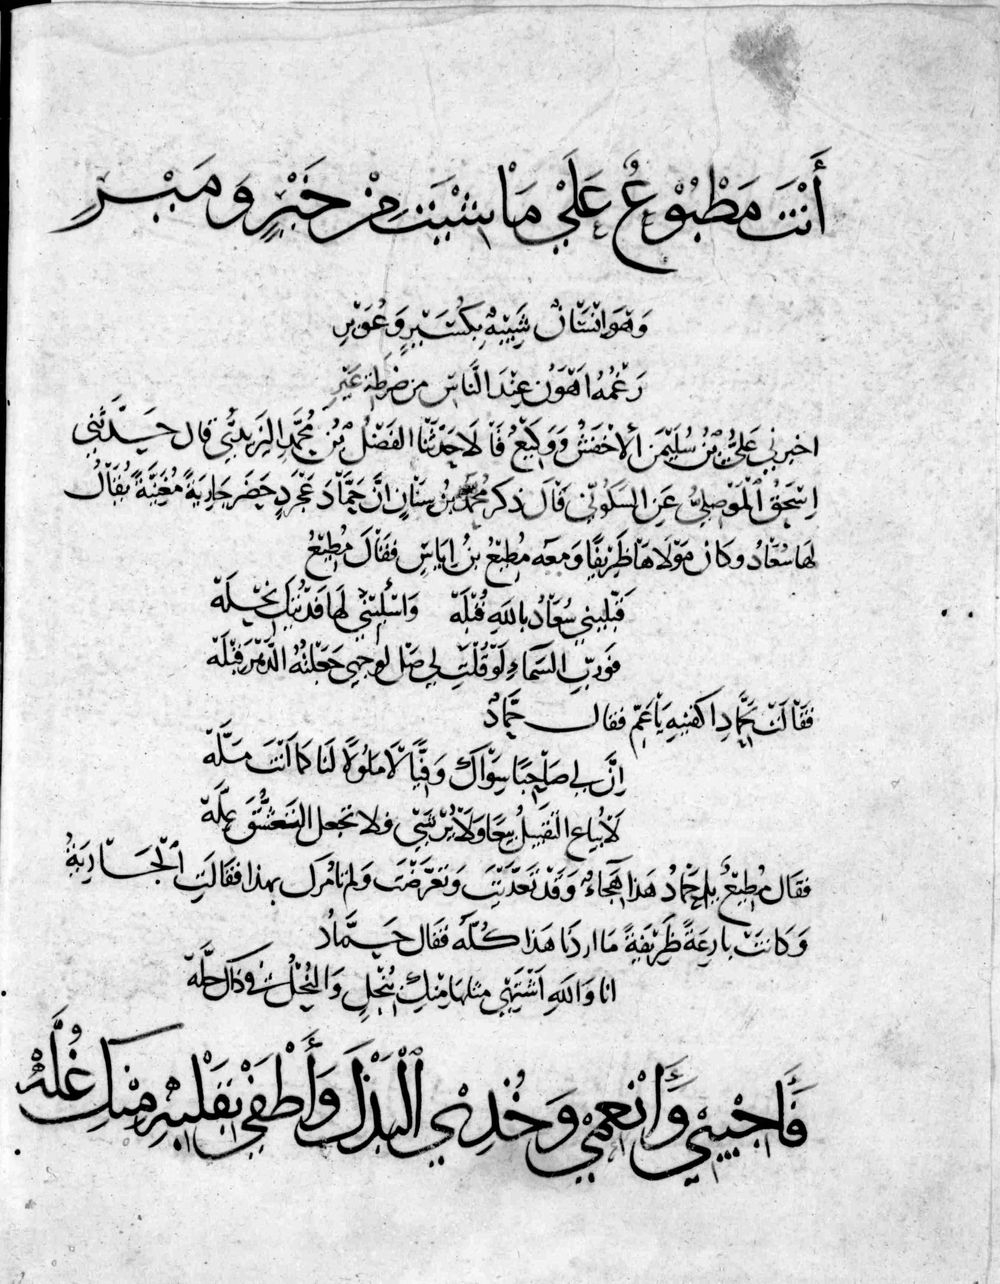 أَنْتَ مَطْبُوْعٌ عَلَى مَا شِئْتَ مِنْ خَيْرٍ وَمَيْرِ
وَهْوَ انْسَانٌ شَبِيْهٌ بِكُسَيْرٍ وَعُوَيْرِ
رَغْمُهُ اَهْوَنُ عِنْدَ النَّاسِ مِن ضَرْطَةِ عَيْرِ
اخبرني عَلِيُّ بْنُ سُلَيْمٰنَ ألأخفَشُ وَوَكِيْعٌ قَالَا حَدَّثَنَا الفَضْلُ بْنُ مُحَمَّدِ اليَزِيْدِيُّ قال حَدَّثَنِي
اِسْحٰقُ الْمَوْصِلِيُّ عَنِ السَّكُوْنِيّ قَالَ ذكر مُحَمَّدُ بْنُ سِنَانٍ انَّ حَمَّادَ عَجْرَدٍ حَضَرَ جَارِيَةً مُغَنِّيَةً يُقَالُ
لها سُعَادُ وكَانَ مَوْلَاهَا ظَرِيْفًا وَمَعَه مُطِيْعُ بْنُ اِيَاسٍ فقَالَ مُطِيْعٌ
قَبِّلِيْنِي سُعَادُ بِاللهِ قُبْلَهْ وَاسْأَلِيْنِي لَهَا فَدَيْتُكِ نِحْلَهْ
فَوَرَبِّ السَّمَاءِ لَوْ قُلْتِ لِي صَلِّ لِوَجْهِي جَعَلْتُهُ الدَّهْرَ قِبْلَهْ
فقَالَتْ لِحَمَّادٍ اكْفِنِيْهِ يَا عَمِّ فقال حَمَّادٌ
اِنَّ لِي صَاحِبًا سِوَاكَ وَفِيًّا لَا مَلُوْلًا لَنَا كمَا أنْتَ مَلَّهْ
لَا يُبَاعُ التَقْبِيلُ بَيْعًا وَلَا يُرْشَى ولا تجْعَلِ التَعَشُّقَ عِلَّهْ
فقال مُطِيْعٌ يا حَمَّادُ هَذَا هِجَاءٌ وَقَدْ تَعَدَّيْتَ وَتَعَرَّضْتَ وَلم نَامُرْكَ بهذا فقَالَتِ الْجَارِيَةُ
وَكَانَتْ بَارِعَةً ظَرِيْفَةً مَا اردنَا هَذَا كُلَّهُ فقَال حَمَّادٌ
انا وَاللهِ اَشْتَهِي مثلهَا مِنْكِ بنُحْلٍ وَالنُحْلُ في ذَاك حِلَّهْ
فَأَجِيْبِي وَأَنْعِمِي وَخُذِي الْبَذْلَ وَأَطْفِي بِقُبْلَةٍ مِنْكِ غُلَّهْ